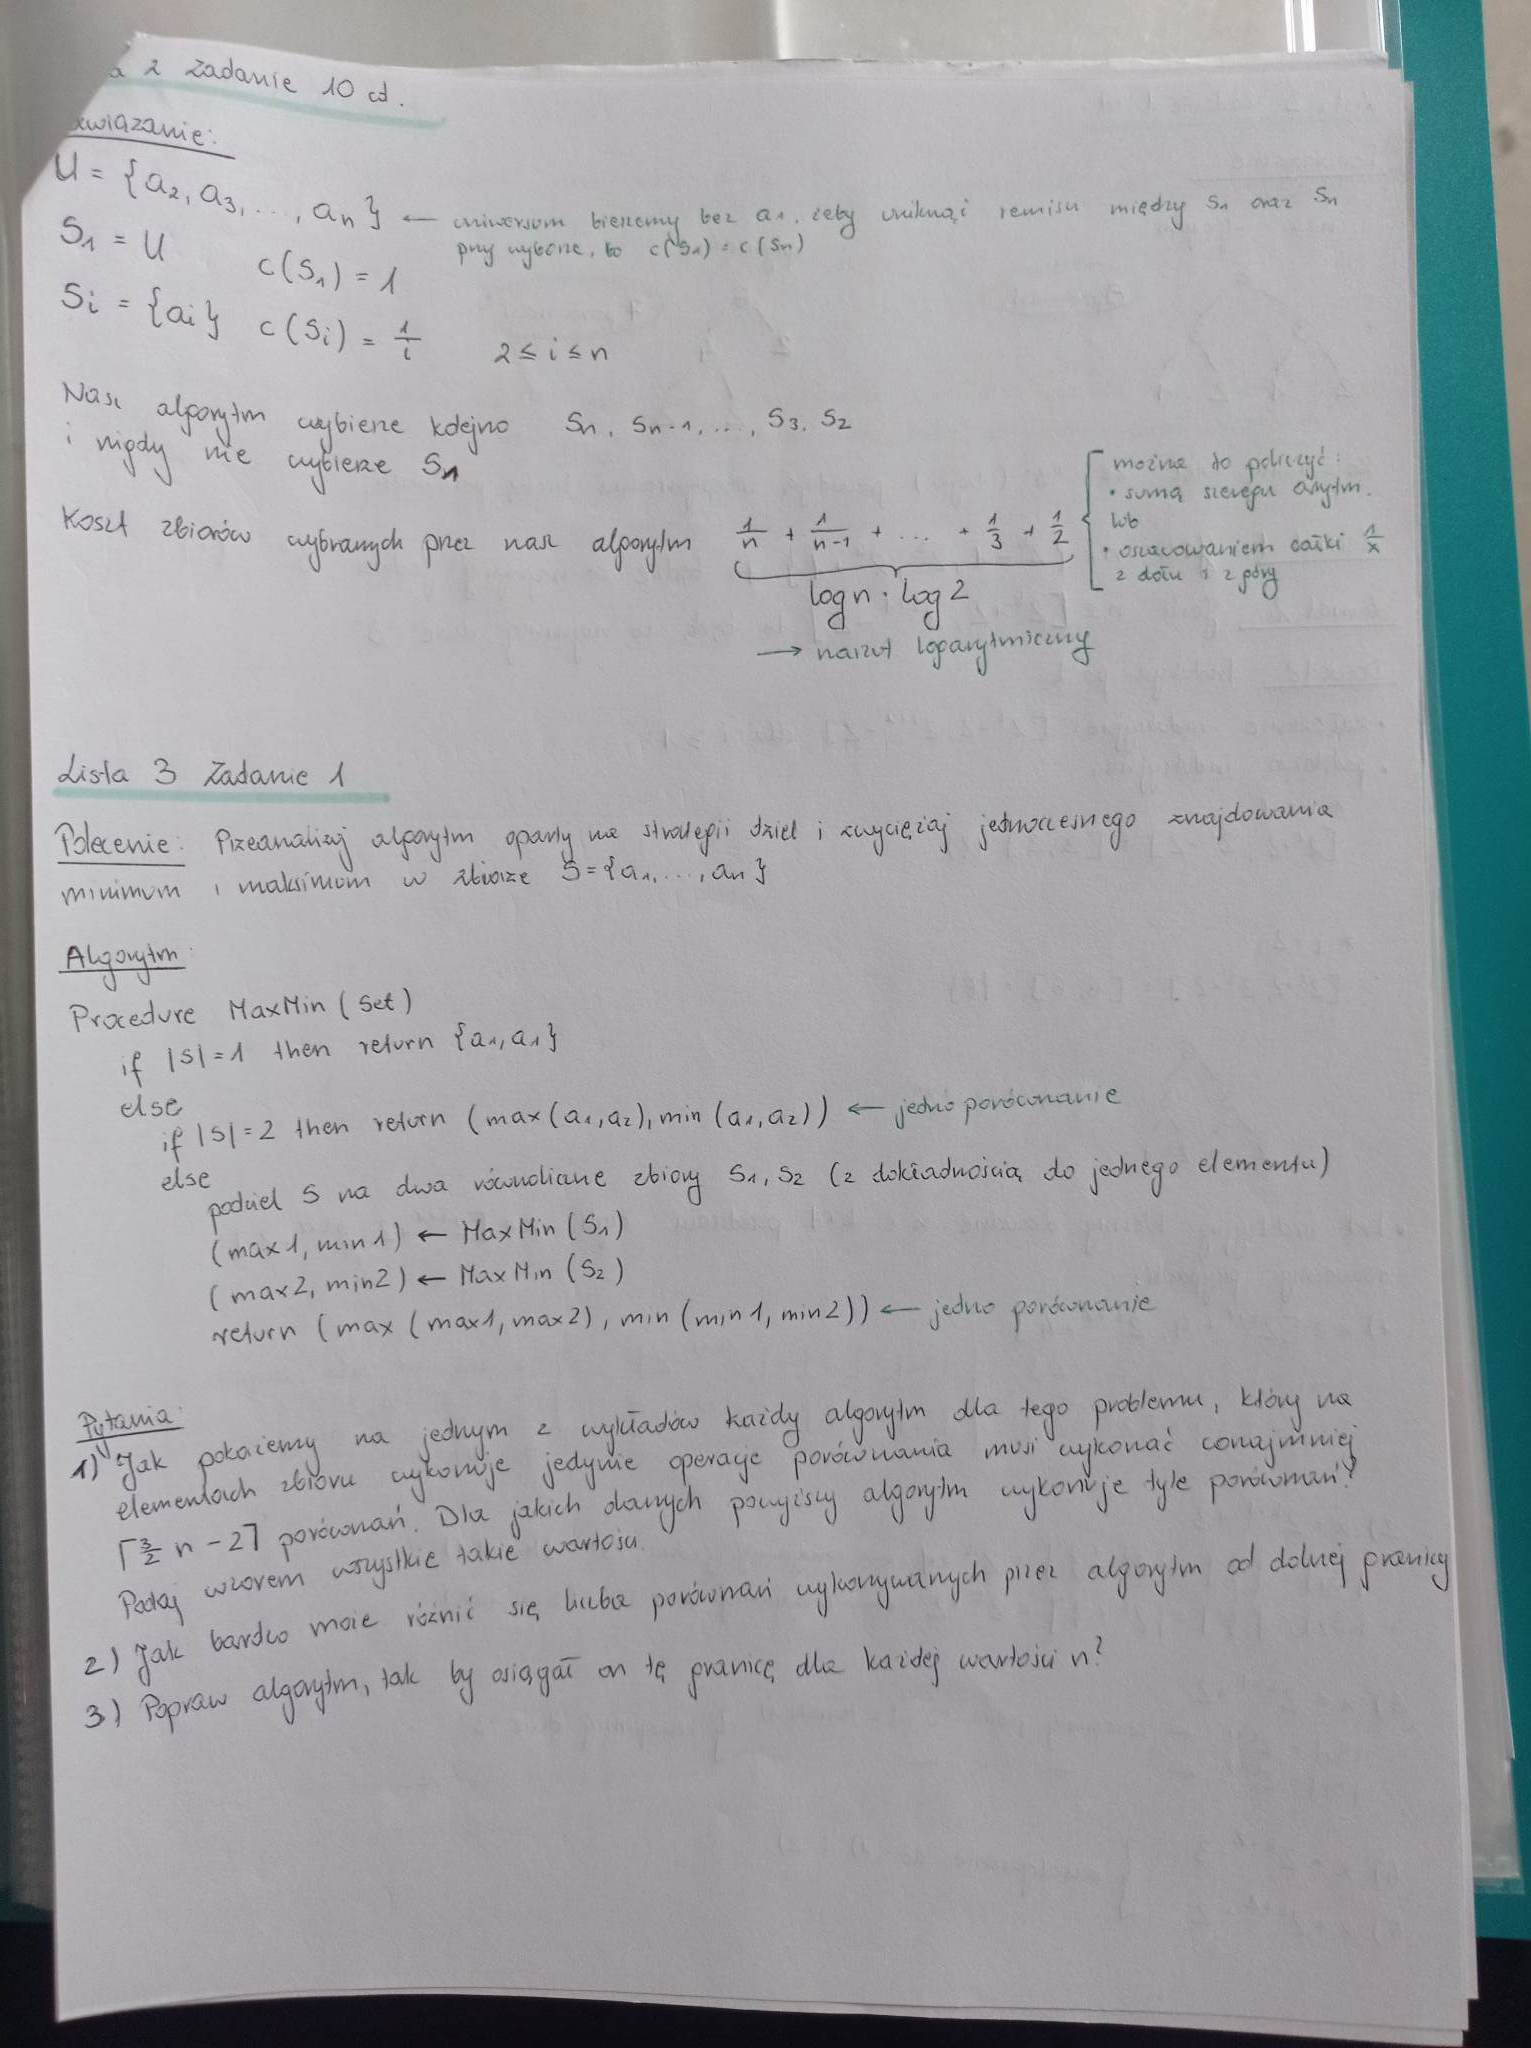 a 2 Zadanie 10 cd.
wiązanie:
U = {a₂, a₃, ..., aₙ} ← uniwersum bierzemy bez a₁, żeby uniknąć remisu między S₁ oraz Sₙ
przy wyborze, bo c(S₁) = c(Sₙ)
S₁ = U c(S₁) = 1
Si = {ai} c(Si) = 1/i 2 ≤ i ≤ n
Nasz algorytm wybierze kolejno Sₙ, Sₙ₋₁, ..., S₃, S₂
i nigdy nie wybierze S₁
Koszt zbiorów wybranych przez nasz algorytm 1/n + 1/n-1 + ... + 1/3 + 1/2
można to policzyć:
• sumą szeregu arytm.
lub
• oszacowaniem całki 1/x
z dołu i z góry
log n · log 2
→ narzut logarytmiczny
Lista 3 Zadanie 1
Polecenie: Przeanalizuj algorytm oparty na strategii dziel i zwyciężaj jednoczesnego znajdowania
minimum i maksimum w zbiorze S = {a₁, ..., aₙ}
Algorytm:
Procedure MaxMin (Set)
if |S| = 1 then return {a₁, a₁}
else
if |S| = 2 then return (max(a₁, a₂), min (a₁, a₂)) ← jedno porównanie
else
podziel S na dwa równoliczne zbiory S₁, S₂ (z dokładnością do jednego elementu)
(max1, min1) ← MaxMin (S₁)
(max2, min2) ← MaxMin (S₂)
return (max (max1, max2), min (min1, min2)) ← jedno porównanie
Pytania:
1) Jak pokażemy na jednym z wykładów każdy algorytm dla tego problemu, który na
elementach zbioru wykonuje jedynie operacje porównania musi wykonać conajmniej
⌈3/2 n - 2⌉ porównań. Dla jakich danych powyższy algorytm wykonuje tyle porównań?
Podaj wzorem wszystkie takie wartości.
2) Jak bardzo może różnić się liczba porównań wykonywanych przez algorytm od dolnej granicy
3) Popraw algorytm, tak by osiągał on tę granicę dla każdej wartości n?